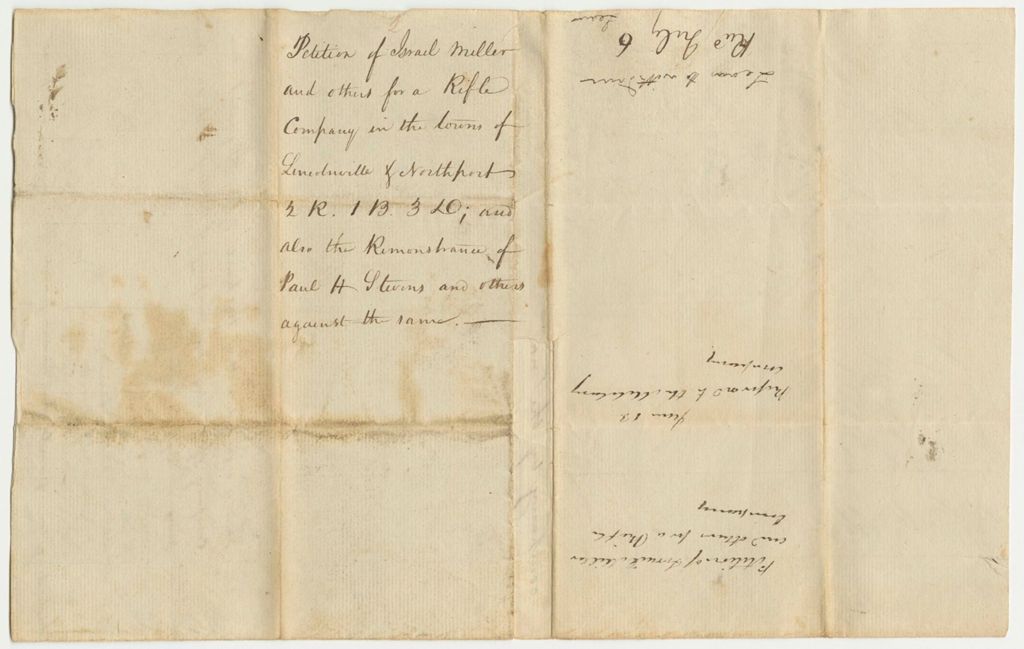 Petition of Israel Miller
and others for a Rifle
Company in the towns of
Lincolnville & Northport
2 R. 1 B. 3 D; and
also the Remonstrance of
Paul H Stevens and others
against the same. —
Petition of Israel Miller
and others for a Rifle
Company
June 13
Referred to the Military
company
Leave to withdraw
July 6